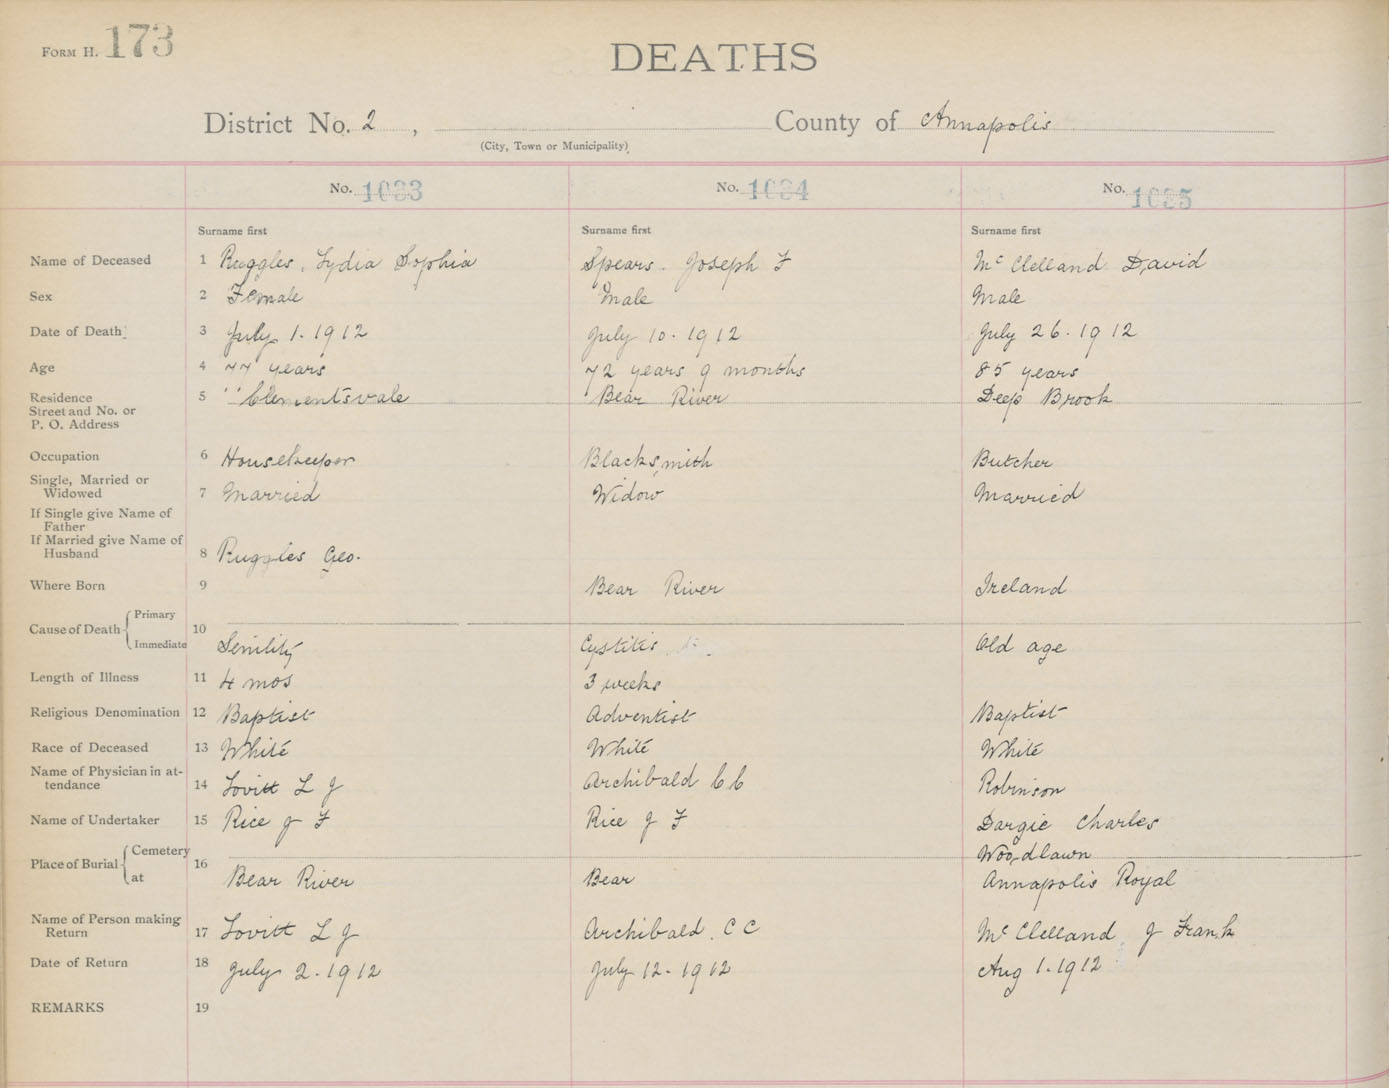 FORM H. 173
DEATHS
District No. 2 , County of Annapolis
(City, Town or Municipality)
No. 1033 No. 1034 No. 1035
Surname first Surname first Surname first
Name of Deceased 1 Ruggles, Lydia Sophia Spears. Joseph F McClelland David
Sex 2 Female Male Male
Date of Death 3 July 1. 1912 July 10. 1912 July 26. 1912
Age 4 77 years 72 years 9 months 85 years
Residence 5 Clementsvale Bear River Deep Brook
Street and No. or
P. O. Address
Occupation 6 Housekeeper Blacksmith Butcher
Single, Married or
Widowed 7 Married Widow Married
If Single give Name of
Father
If Married give Name of
Husband 8 Ruggles Geo.
Where Born 9 Bear River Ireland
Primary
Cause of Death 10
Immediate Senility Cystitis Old age
Length of Illness 11 4 mos 3 weeks
Religious Denomination 12 Baptist Adventist Baptist
Race of Deceased 13 White White White
Name of Physician in at-
tendance 14 Lovitt L J Archibald C C Robinson
Name of Undertaker 15 Rice J F Rice J F Dargie Charles
Cemetery Woodlawn
Place of Burial 16
at Bear River Bear Annapolis Royal
Name of Person making
Return 17 Lovitt L J Archibald. C C McClelland J Frank
Date of Return 18 July 2. 1912 July 12. 1912 Aug 1. 1912
REMARKS 19